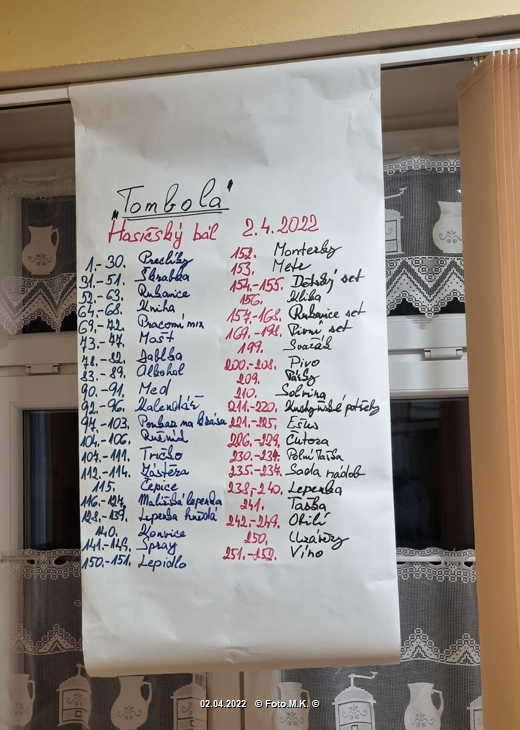 „Tombola"
Hasičský bál 2.4.2022
1.-30. Preclíky
31.-51. Škrabka
52.-63. Rukavice
64.-68. Kniha
69.-72. Pracovní mix
73.-77. Mošt
78.-82. Jablka
83.-89. Alkohol
90.-91. Med
92.-96. Kalendář
97.-103. Poukaz na
104.-106. Ručník
107.-111. Tričko
112.-114. Zástěra
115. Čepice
116.-127. leperka
128.-139. Leperka hnědá
140. Konvice
141.-149. Spray
150.-151. Lepidlo
152. Monterky
153. Metr
154.-155. Dětský set
156. Klika
157.-168. Rukavice set
169.-198. Pivní set
199. Svařák
200.-208. Pivo
209.
210.
211.-220. Kuchyňské potřeby
221.-225. Ešus
226.-229. Čutora
230.-234. Polní Taška
235.-237. Sada nádob
238.-240. Leperka
241. Taška
242.-249. Obilí
250. Uzávěry
251.-252. Víno
02.04.2022 © Foto.M.K. ©